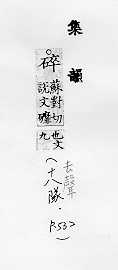 集韻
碎
蘇對切
說文䃺
也文
九
(去聲
十八隊.
P.532)